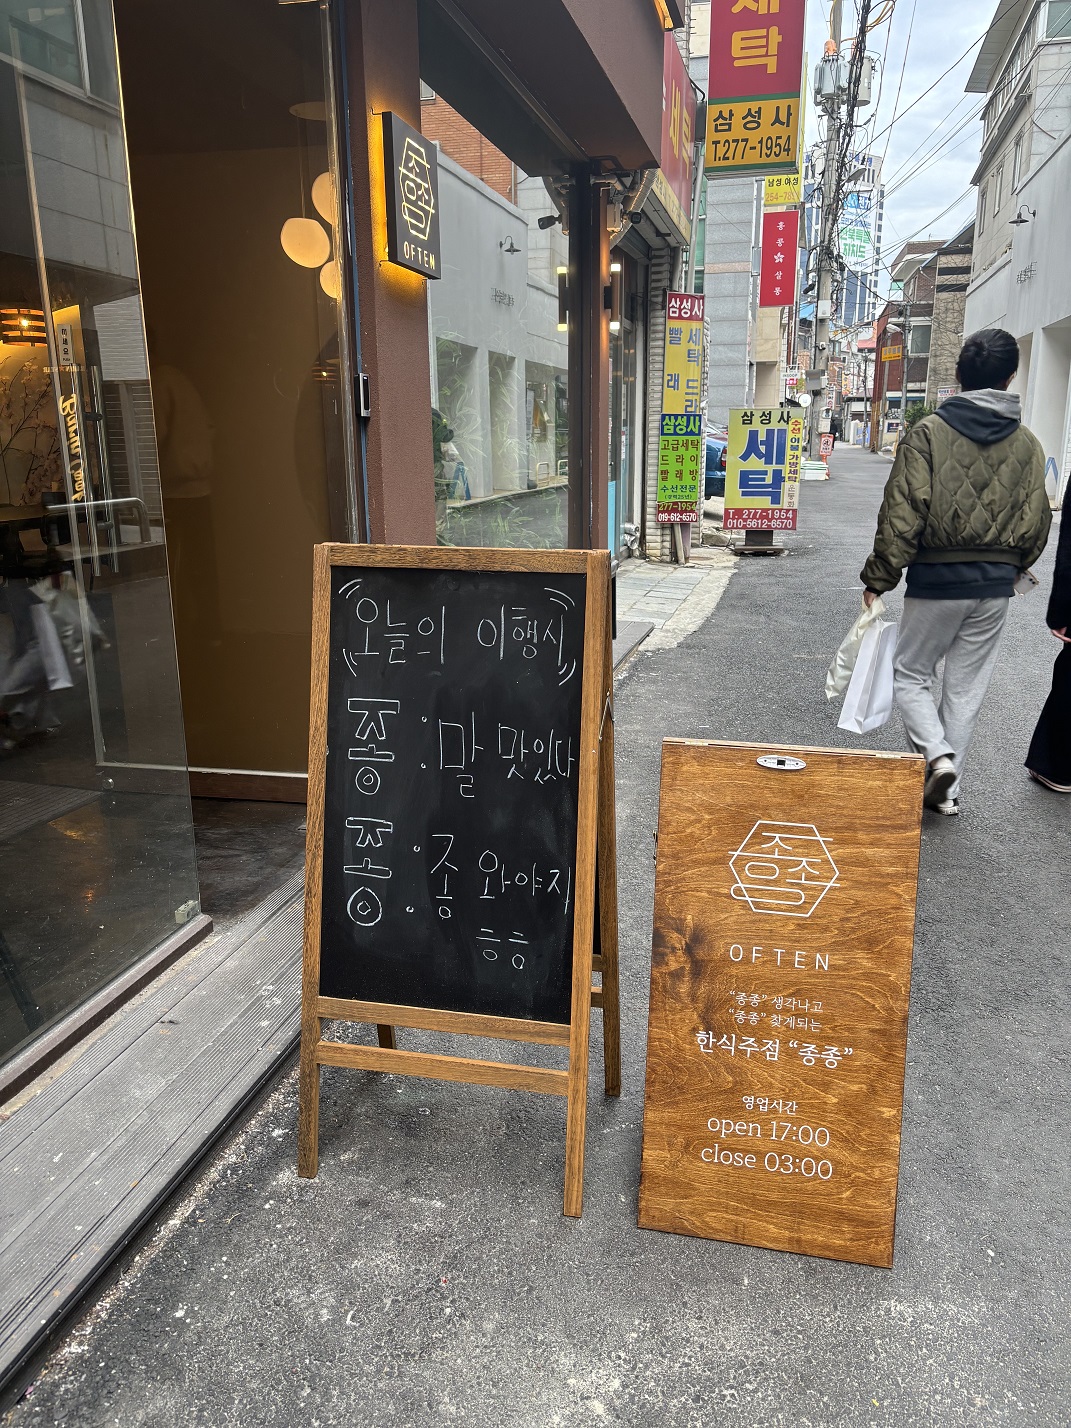 세탁
삼성사
T.277-1954
남성.여성
홍콩살롱
종종
OFTEN
삼성사
빨래
세탁
드라
삼성사
고급세탁
드라이
빨래방
수선전문
277-1954
019-612-6570
삼성사
세탁
T. 277-1954
010-5612-6570
오늘의 이행시
종 : 말 맛있다
종 : 종 와야지
ㅎㅎ
종종
OFTEN
“종종” 생각나고
“종종” 찾게되는
한식주점 “종종”
영업시간
open 17:00
close 03:00